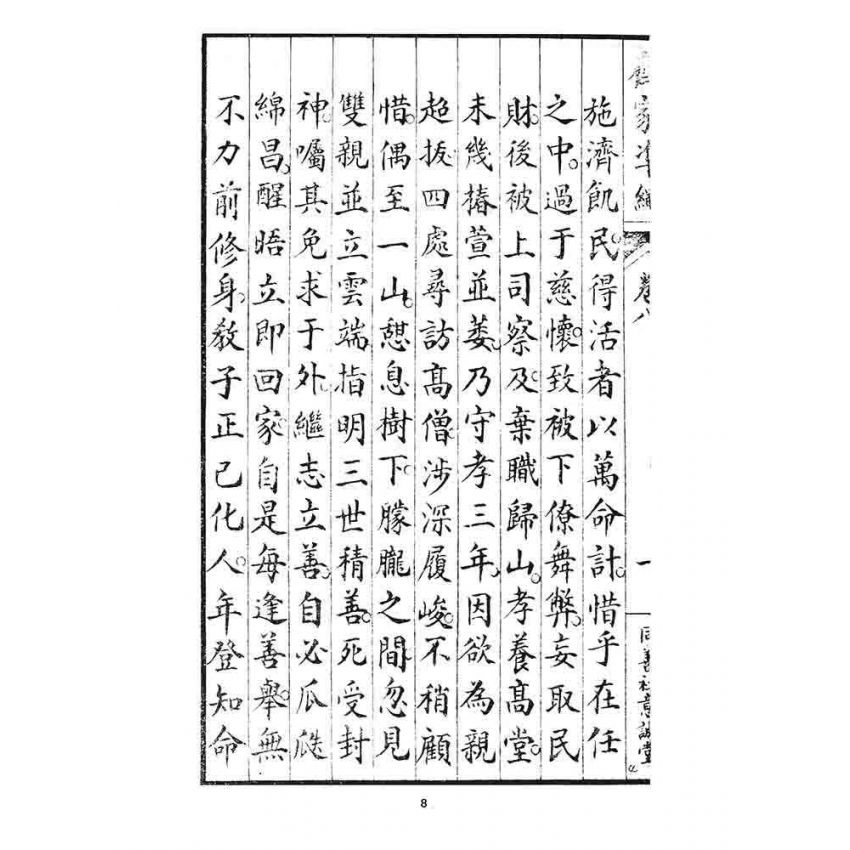 家準繩
卷八
一
同善社意誠堂
施濟飢民。得活者以萬命計。惜乎在任
之中。過于慈懷。致被下僚舞弊。妄取民
財。後被上司察及。棄職歸山。孝養高堂。
未幾椿萱並萎。乃守孝三年。因欲為親
超拔四處尋訪高僧。涉深履峻。不稍顧
惜。偶至一山。憩息樹下。朦朧之間。忽見
雙親並立雲端。指明三世積善。死受封
神。囑其免求于外。繼志立善。自必瓜瓞
綿昌。醒晤立即回家。自是每逢善舉。無
不力前修身。教子正己化人。年登知命
8